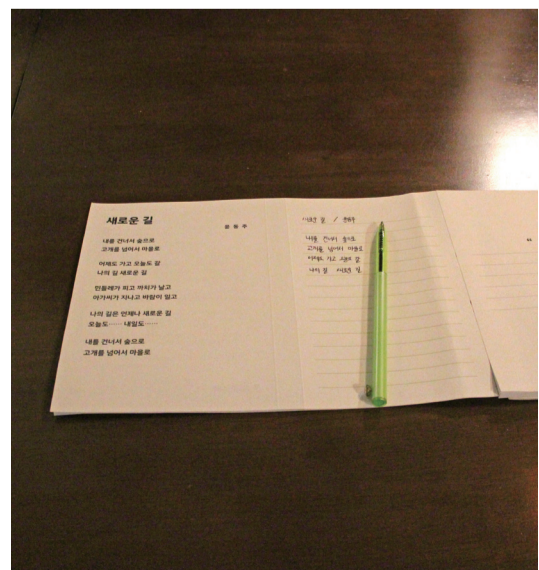 새로운 길
윤동주
내를 건너서 숲으로
고개를 넘어서 마을로
어제도 가고 오늘도 갈
나의 길 새로운 길
민들레가 피고 까치가 날고
아가씨가 지나고 바람이 일고
나의 길은 언제나 새로운 길
오늘도…… 내일도……
내를 건너서 숲으로
고개를 넘어서 마을로
새로운 길 / 윤동주
내를 건너서 숲으로
고개를 넘어서 마을로
어제도 가고 오늘도 갈
나의 길 새로운 길
“